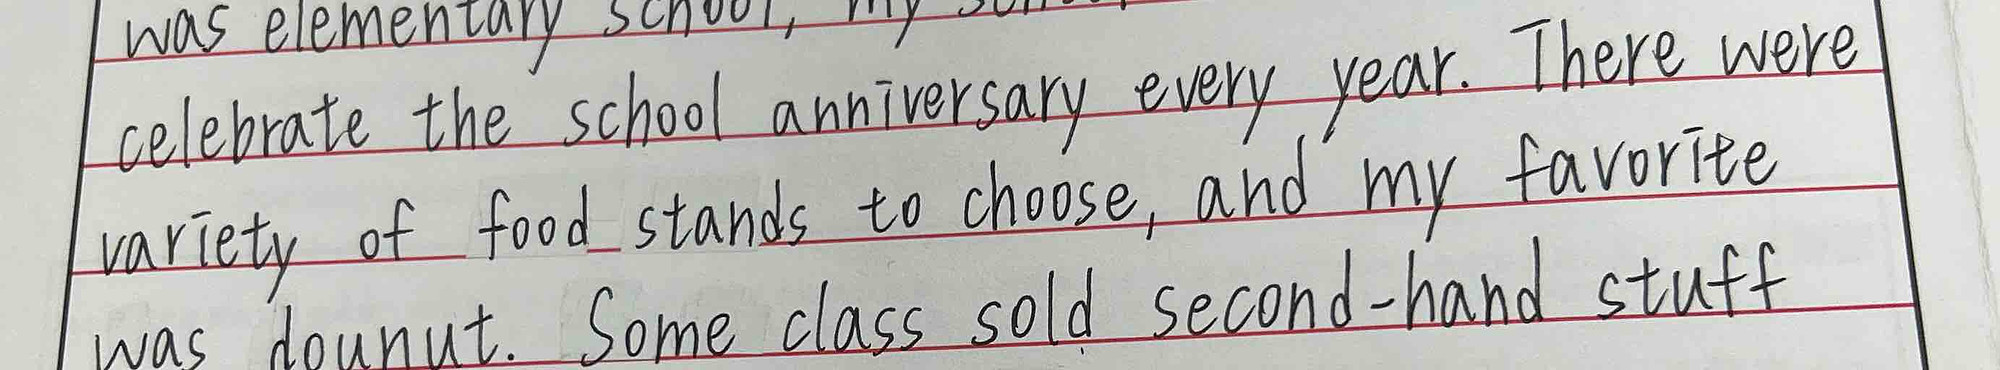 was elementary school, my
celebrate the school anniversary every year. There were
variety of food stands to choose, and my favorite
was dounut. Some class sold second-hand stuff